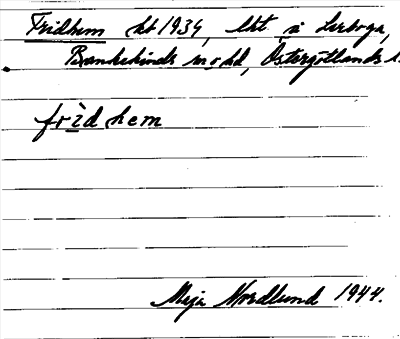 Fridhem ht 1934, lht å Lerboga,
Bankekinds sn o hd, Östergötlands l.
frìdhem
Meja Nordlund 1944.